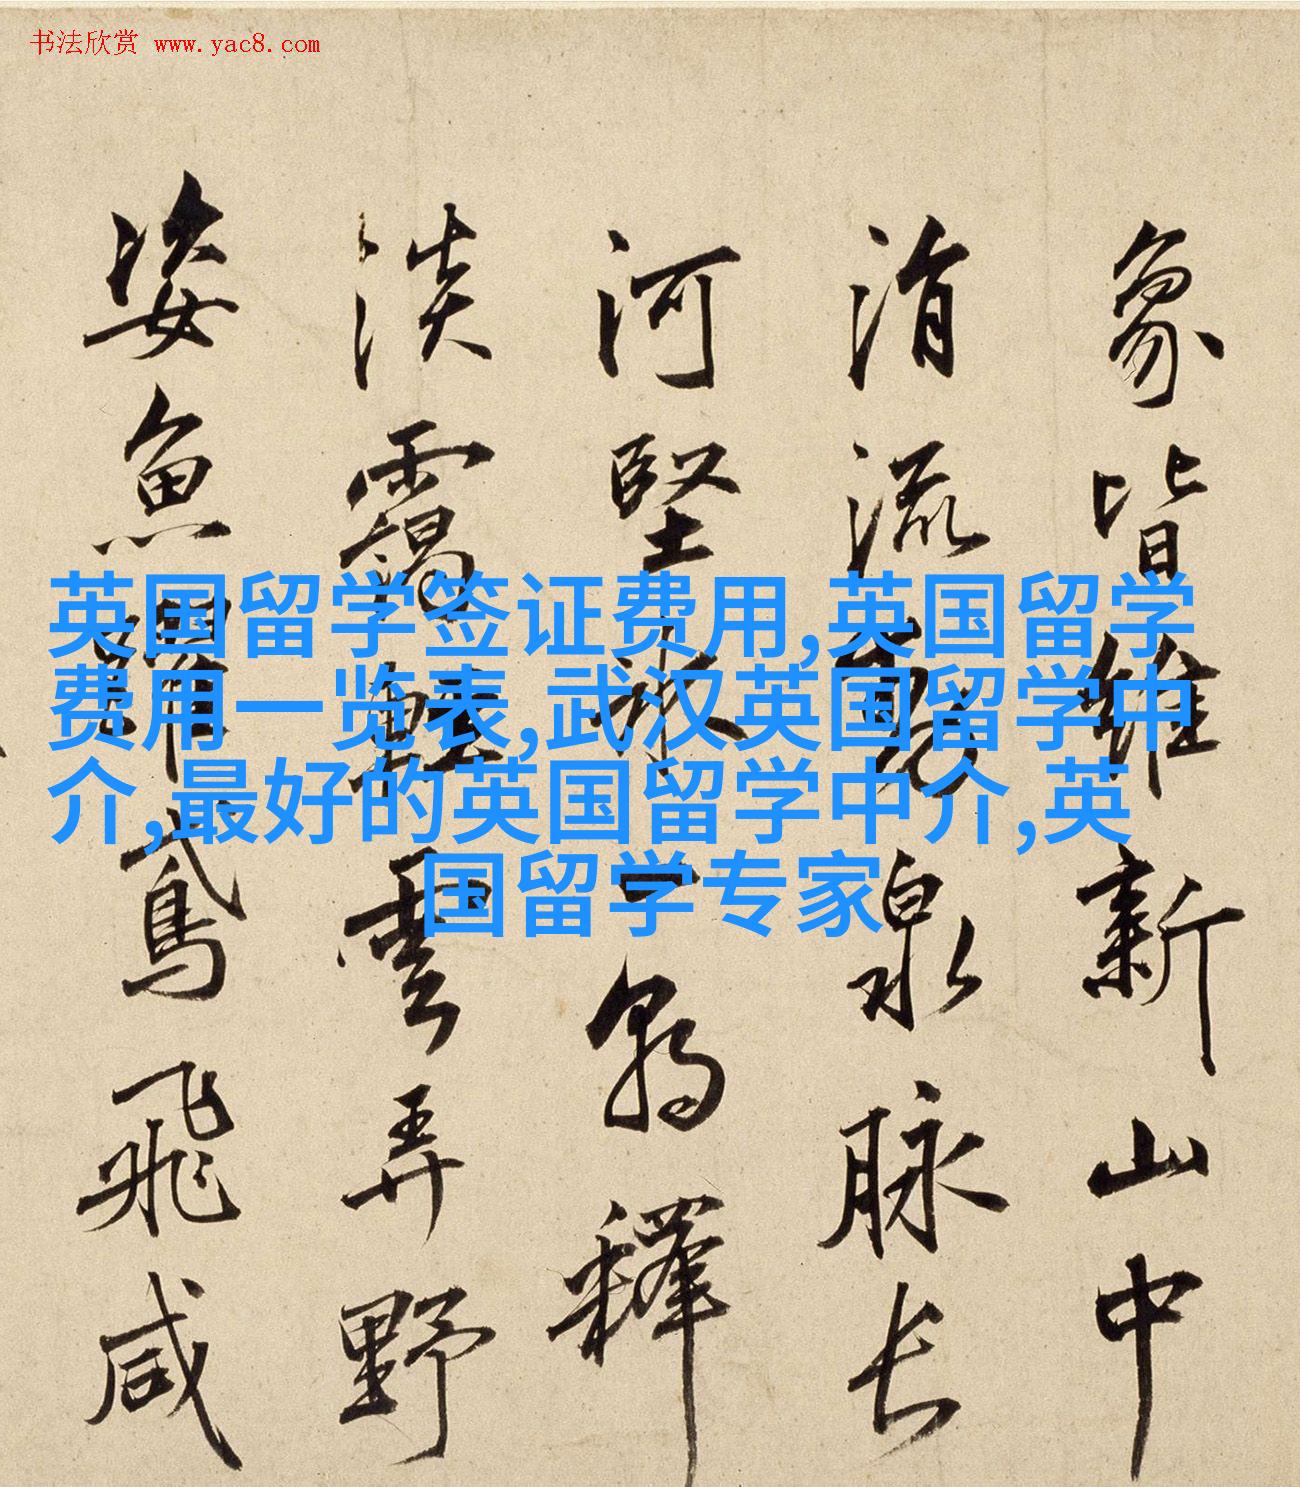 书法欣赏 www.yac8.com
象皆維新山中
涓流泉脉長
河堅冰一朝釋
淡靄輕雲弄野
姿魚躍鳶飛咸
英国留学签证费用,英国留学
费用一览表,武汉英国留学中
介,最好的英国留学中介,英
国留学专家